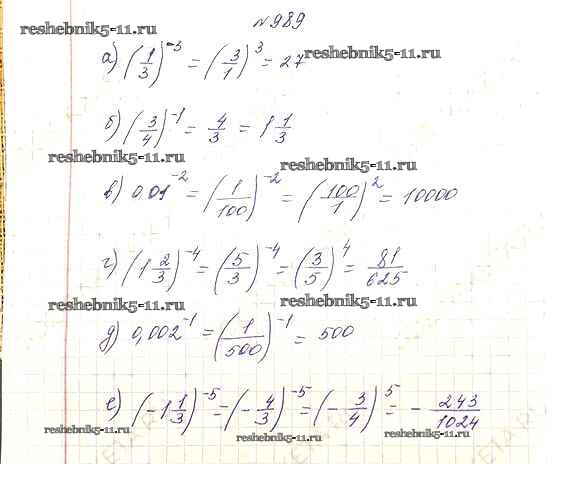 №989
reshebnik5-11.ru reshebnik5-11.ru
а) (1/3)^-3 = (3/1)^3 = 27
б) (3/4)^-1 = 4/3 = 1 1/3
reshebnik5-11.ru reshebnik5-11.ru
в) 0,01^-2 = (1/100)^-2 = (100/1)^2 = 10000
г) (1 2/3)^-4 = (5/3)^-4 = (3/5)^4 = 81/625
reshebnik5-11.ru reshebnik5-11.ru
д) 0,002^-1 = (1/500)^-1 = 500
е) (-1 1/3)^-5 = (-4/3)^-5 = (-3/4)^5 = -243/1024
reshebnik5-11.ru reshebnik5-11.ru reshebnik5-11.ru